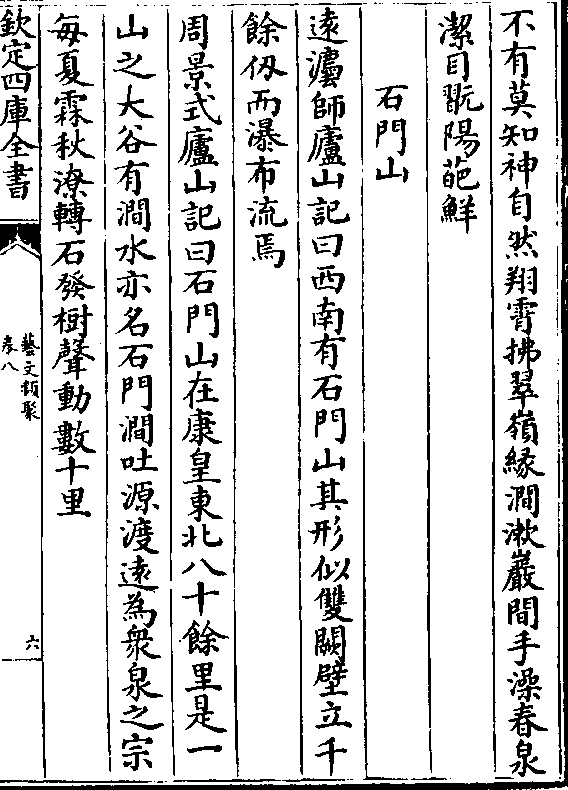 不有莫知神自然翔霄拂翠嶺緣澗漱巖間手澡春泉
潔目翫陽葩鮮
石門山
遠灋師廬山記曰西南有石門山其形似雙闕壁立千
餘仭而瀑布流焉
周景式廬山記曰石門山在康皇東北八十餘里是一
山之大谷有澗水亦名石門澗吐源渡遠為衆泉之宗
每夏霖秋潦轉石發樹聲動數十里
欽定四庫全書
藝文類聚
卷八
六